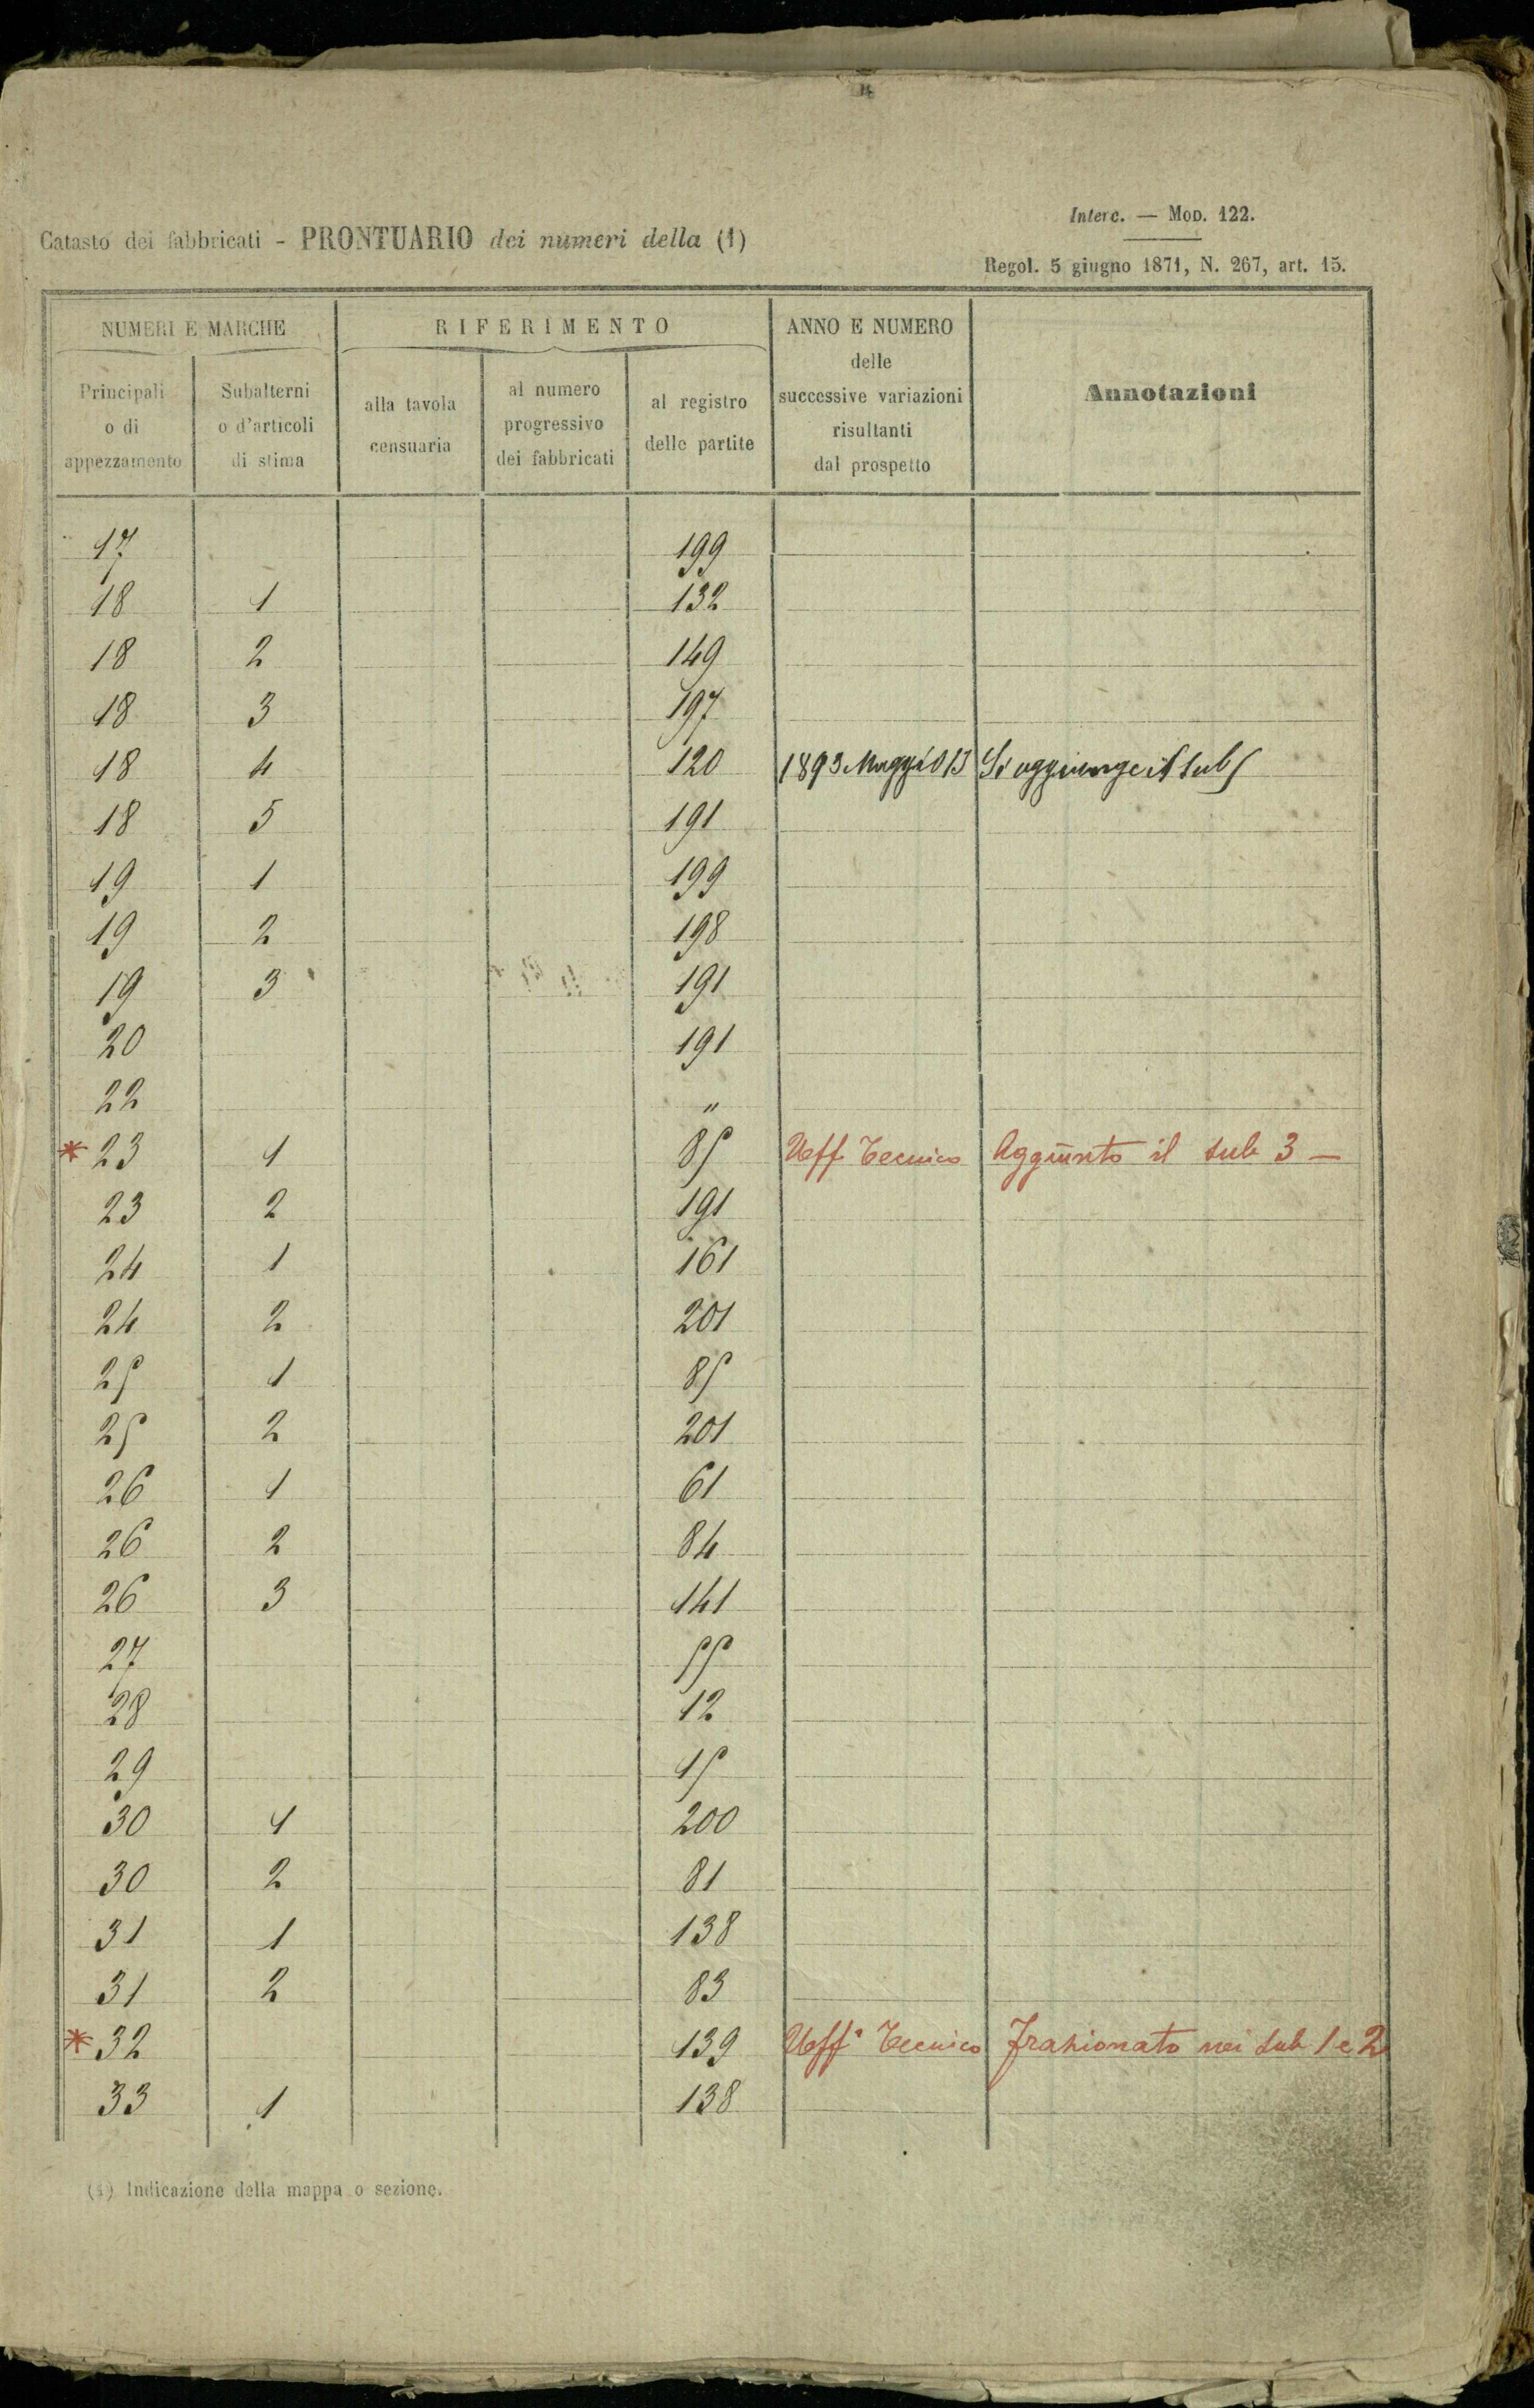 Interc. — Mod. 122.
Catasto dei fabbricati - PRONTUARIO dei numeri della (1)
Regol. 5 giugno 1871, N. 267, art. 15.
NUMERI E MARCHE
RIFERIMENTO
ANNO E NUMERO
delle
successive variazioni
risultanti
dal prospetto
Annotazioni
Principali
o di
appezzamento
Subalterni
o d'articoli
di stima
alla tavola
censuaria
al numero
progressivo
dei fabbricati
al registro
delle partite
17 199
18 1 132
18 2 149
18 3 197
18 4 120 1893 Maggio 13 Si aggiunge il sub 5
18 5 191
19 1 199
19 2 198
19 3 191
20 191
22 "
* 23 1 85 Uff. Tecnico Aggiunto il sub 3 —
23 2 191
24 1 161
24 2 201
25 1 85
25 2 201
26 1 61
26 2 84
26 3 141
27 55
28 12
29 15
30 1 200
30 2 81
31 1 138
31 2 83
* 32 139 Uff. Tecnico frazionato nei sub 1 e 2
33 1 138
(1) Indicazione della mappa o sezione.